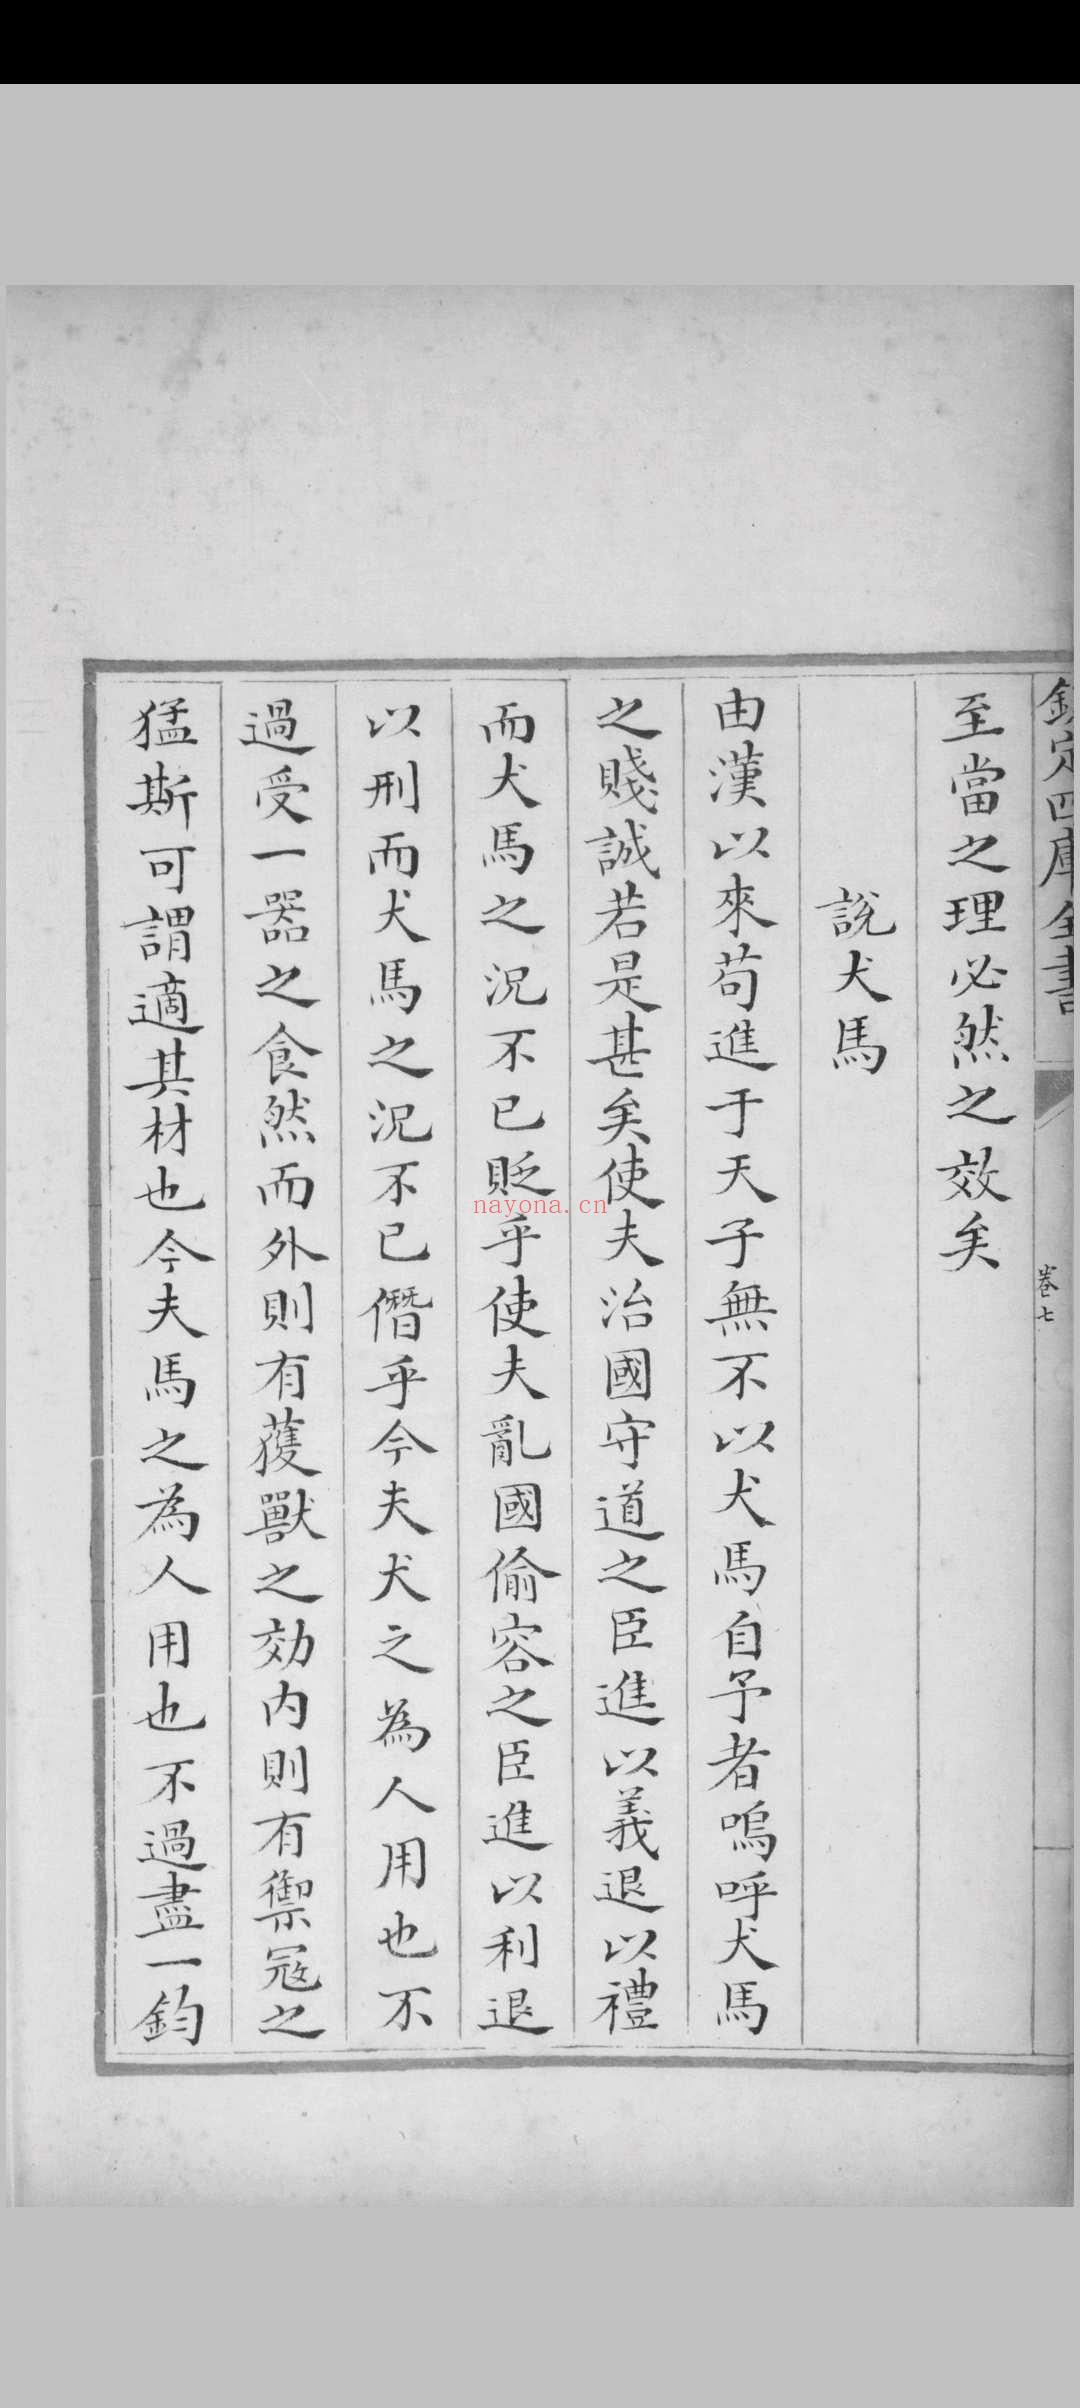 欽定四庫全書
卷七
至當之理必然之效矣
說犬馬
由漢以來苟進于天子無不以犬馬自予者嗚呼犬馬
之賤誠若是甚矣使夫治國守道之臣進以義退以禮
而犬馬之況不已貶乎使夫亂國偷容之臣進以利退
以刑而犬馬之況不已僭乎今夫犬之為人用也不
過受一器之食然而外則有獲獸之効内則有禦冦之
猛斯可謂適其材也今夫馬之為人用也不過盡一鈞
nayona.cn